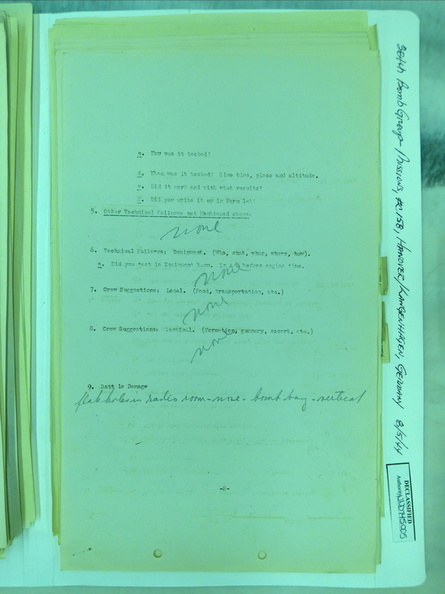 c. How was it tested?
d. When was it tested? Give time, place and altitude.
e. Did it work and with what results?
f. Did you write it up in Form 1-A?
5. Other Technical Failures not Mentioned above
none
6. Technical Failures: Equipment. (Who, what, when, where, how).
a. Did you post in Equipment Room. before engine time.
none
7. Crew Suggestions: Local. (Food, transportation, etc.)
none
8. Crew Suggestions: Tactical. (Formation, gunnery, escort, etc.)
none
9. Battle Damage
flak holes in radio room - nose - bomb bay - vertical
-2-
384th Bomb Group Missions, 158, Hanover/Langenhagen, Germany 8/5/44
DECLASSIFIED
Authority NND745005